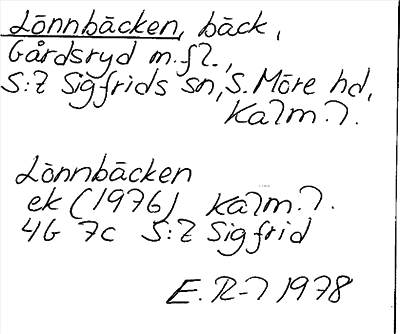 Lönnbäcken, bäck,
Gårdsryd m.fl.,
S:t Sigfrids sn, S. Möre hd,
Kalm. l.
Lönnbäcken
ek (1976) Kalm. l.
4G 7c S:t Sigfrid
E. R-l 1978